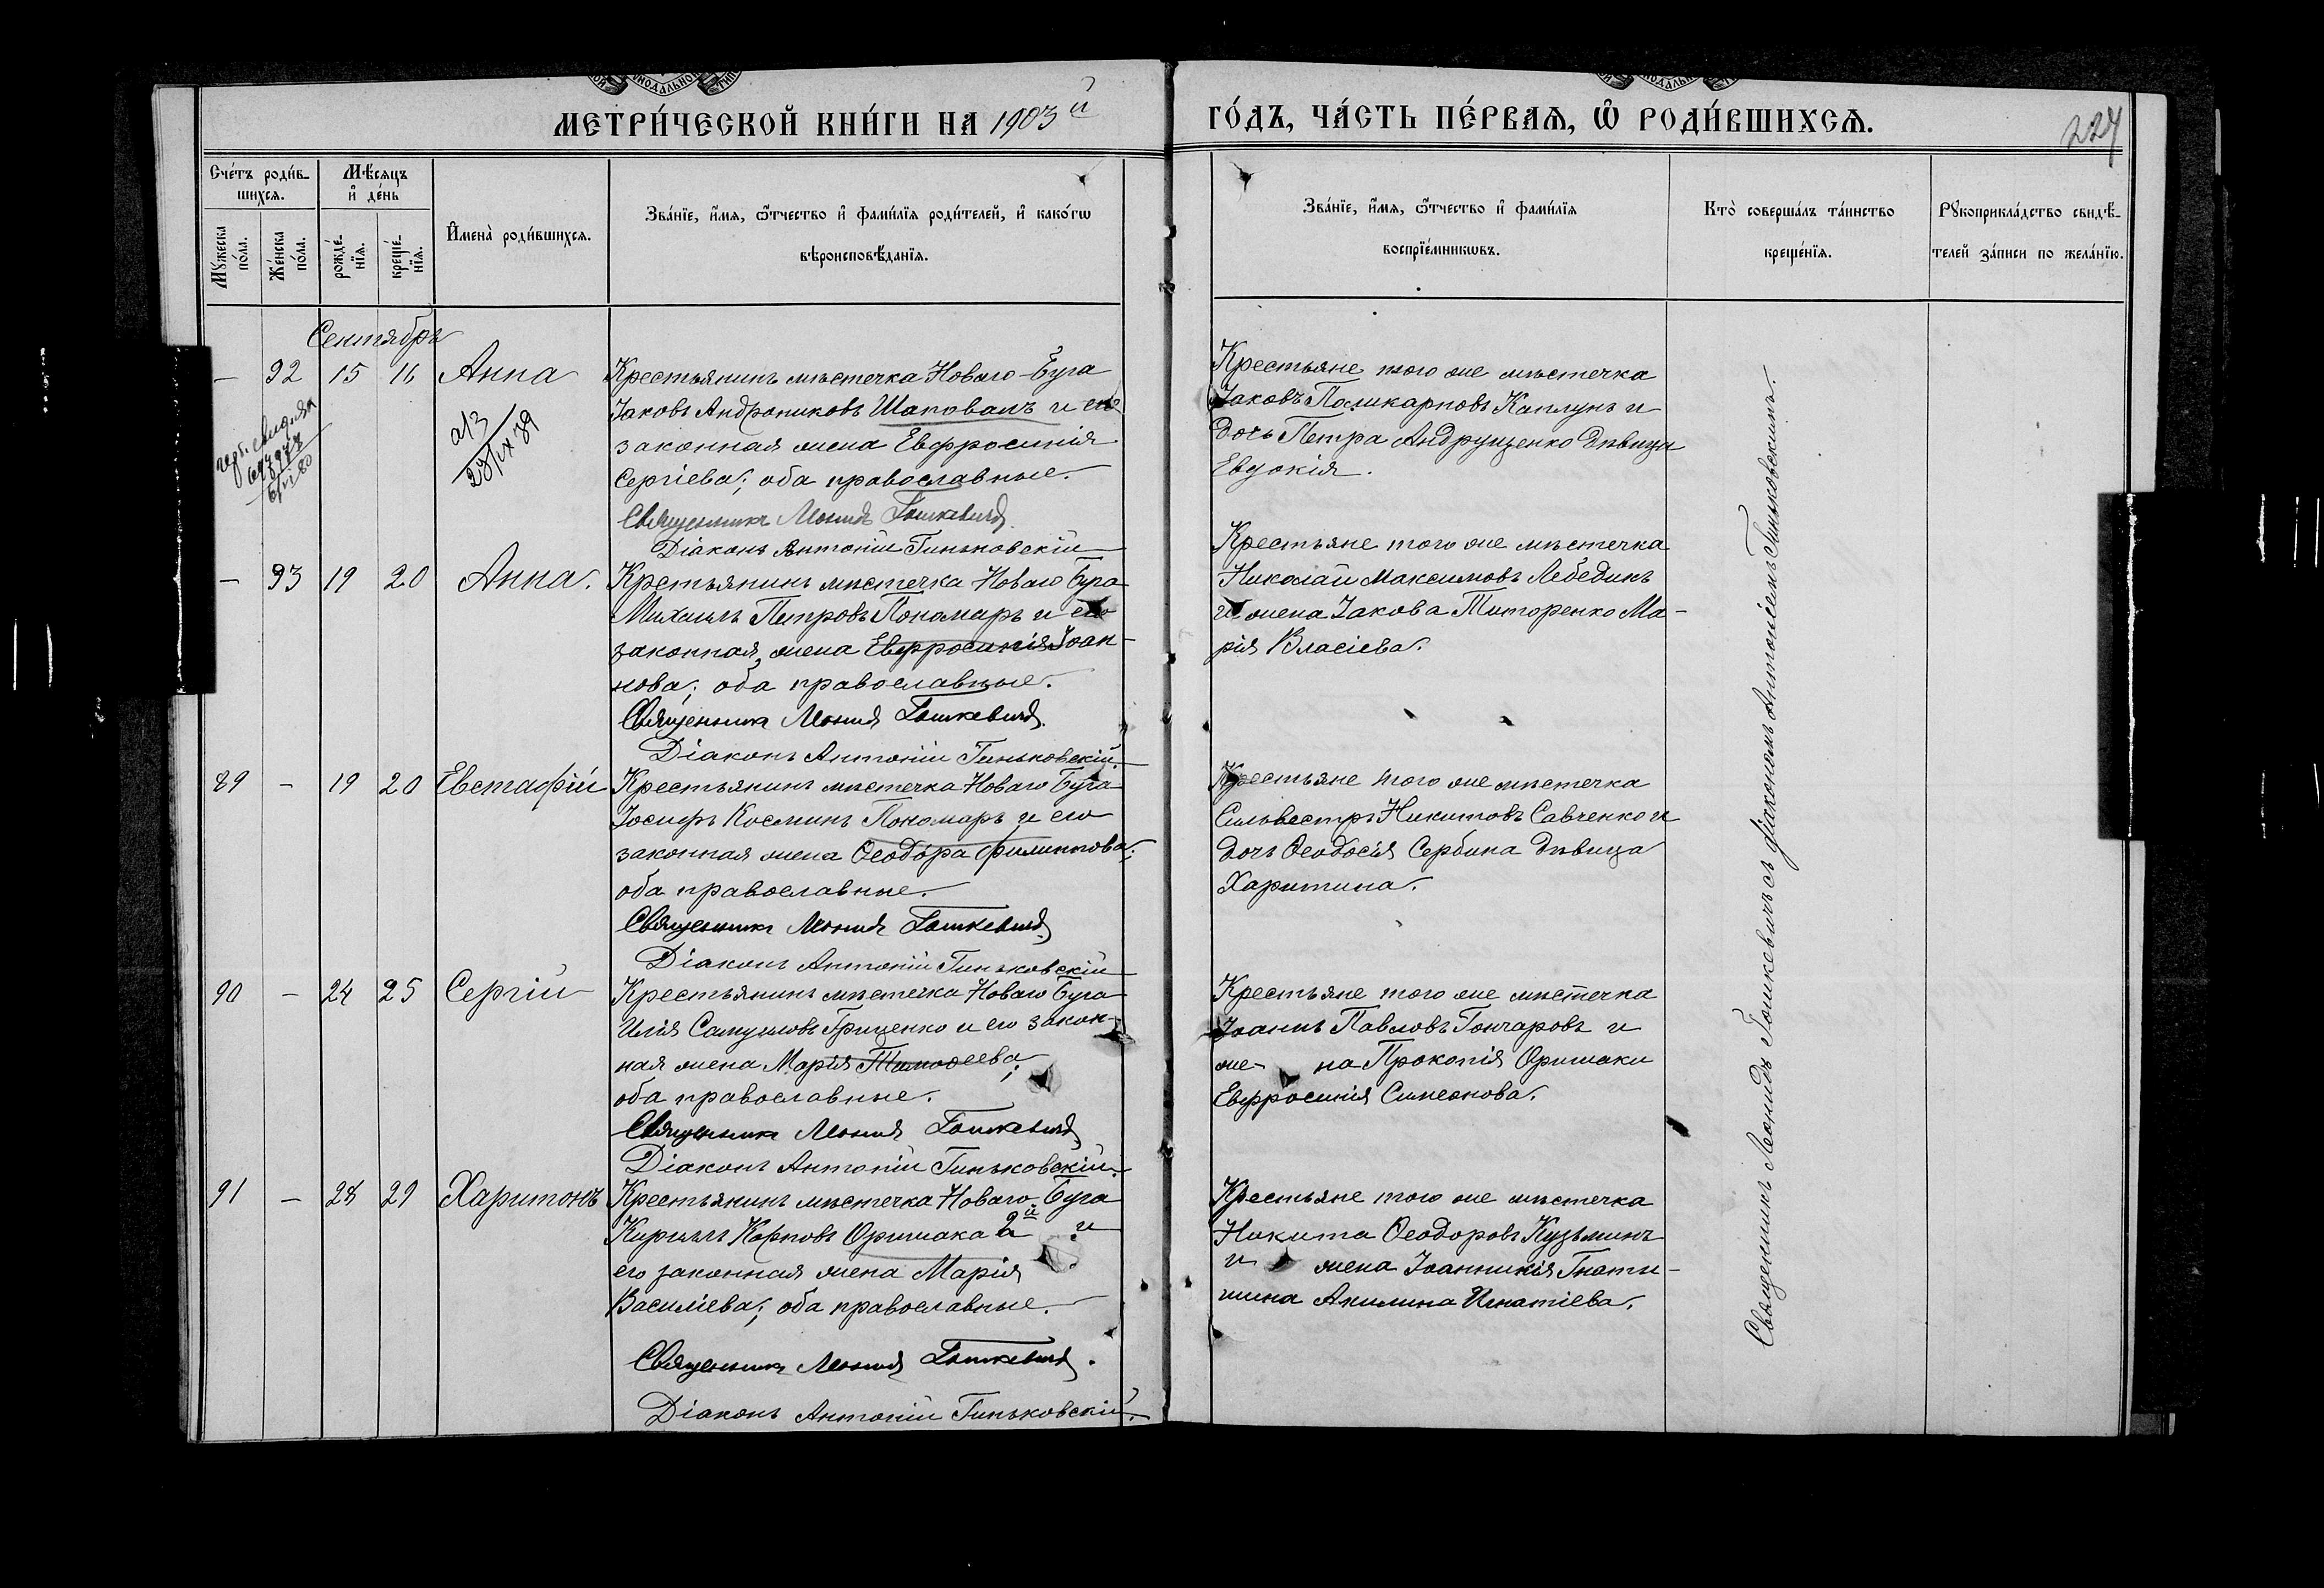 МЕТРИ́ЧЕСКОЙ КНИ́ГИ НА 1903й
ГО́ДЪ, ЧА́СТЬ ПЕ́РВАѦ, Ѡ҆ РОДИ́ВШИХСѦ.
227
Сче́тъ роди́в-
шихсѧ.
Мѣ́сѧцъ
и҆ де́нь
Мꙋ́жеска
по́ла.
Же́нска
по́ла.
рожде́-
нїѧ.
креще́-
нїѧ.
И҆мена̀ роди́вшихсѧ.
Зва́нїе, и҆́мѧ, ѻ҆́тчество и҆ фами́лїѧ роди́телей, и҆ како́гѡ
вѣроисповѣ́данїѧ.
Зва́нїе, и҆́мѧ, ѻ҆́тчество и҆ фами́лїѧ
воспрїе́мникѡвъ.
Кто̀ соверша́лъ та́инство
креще́нїѧ.
Рꙋкоприкла́дство свидѣ́-
телей за́писи по жела́нїю.
Сентябрь
— 92 15 16 Анна
Крестьянинъ мѣстечка Новаго-Буга
Іаковъ Андрониковъ Шаповалъ и его
законная жена Евфросинія
Сергіева; оба православные.
Священникъ Леонидъ Гошкевичъ
Діаконъ Антоній Гиньковскій
Крестьяне того же мѣстечка
Іаковъ Поликарповъ Каплунъ и
дочь Петра Андрущенко дѣвица
Евдокія.
— 93 19 20 Анна.
Крестьянинъ мѣстечка Новаго Буга
Михаилъ Петровъ Пономарь и его
законная жена Евфросинія Іоан-
нова; оба православные.
Священникъ Леонидъ Гошкевичъ.
Діаконъ Антоній Гиньковскій.
Крестьяне того же мѣстечка
Николай Максимовъ Лебединъ
и жена Іакова Титоренко Ма-
рія Власіева.
89 — 19 20 Евстафій
Крестьянинъ мѣстечка Новаго Буга
Іосифъ Косминъ Пономарь и его
законная жена Ѳеодора Филиппова;
оба православные.
Священникъ Леонидъ Гошкевичъ
Діаконъ Антоній Гиньковскій
Крестьяне того же мѣстечка
Сильвестръ Никитовъ Савченко и
дочь Ѳеодосія Сербина дѣвица
Харитина.
90 — 24 25 Сергій
Крестьянинъ мѣстечка Новаго Буга
Илія Самуиловъ Гриценко и его закон-
ная жена Марія Тимоѳеева;
оба православные.
Священникъ Леонидъ Гошкевичъ
Діаконъ Антоній Гиньковскій.
Крестьяне того же мѣстечка
Іоаннъ Павловъ Гончаровъ и
же- на Прокопія Оришаки
Евфросинія Симеонова.
91 — 28 29 Харитонъ
Крестьянинъ мѣстечка Новаго-Буга
Кириллъ Карповъ Оришака 2й и
его законная жена Марія
Василіева; оба православные.
Священникъ Леонидъ Гошкевичъ.
Діаконъ Антоній Гиньковскій.
Крестьяне того же мѣстечка
Никита Ѳеодоровъ Кузьминъ
и жена Іоанникія Гнати-
шина Акилина Игнатіева.
Священникъ Леонидъ Гошкевичъ съ діакономъ Антоніемъ Гиньковскимъ.